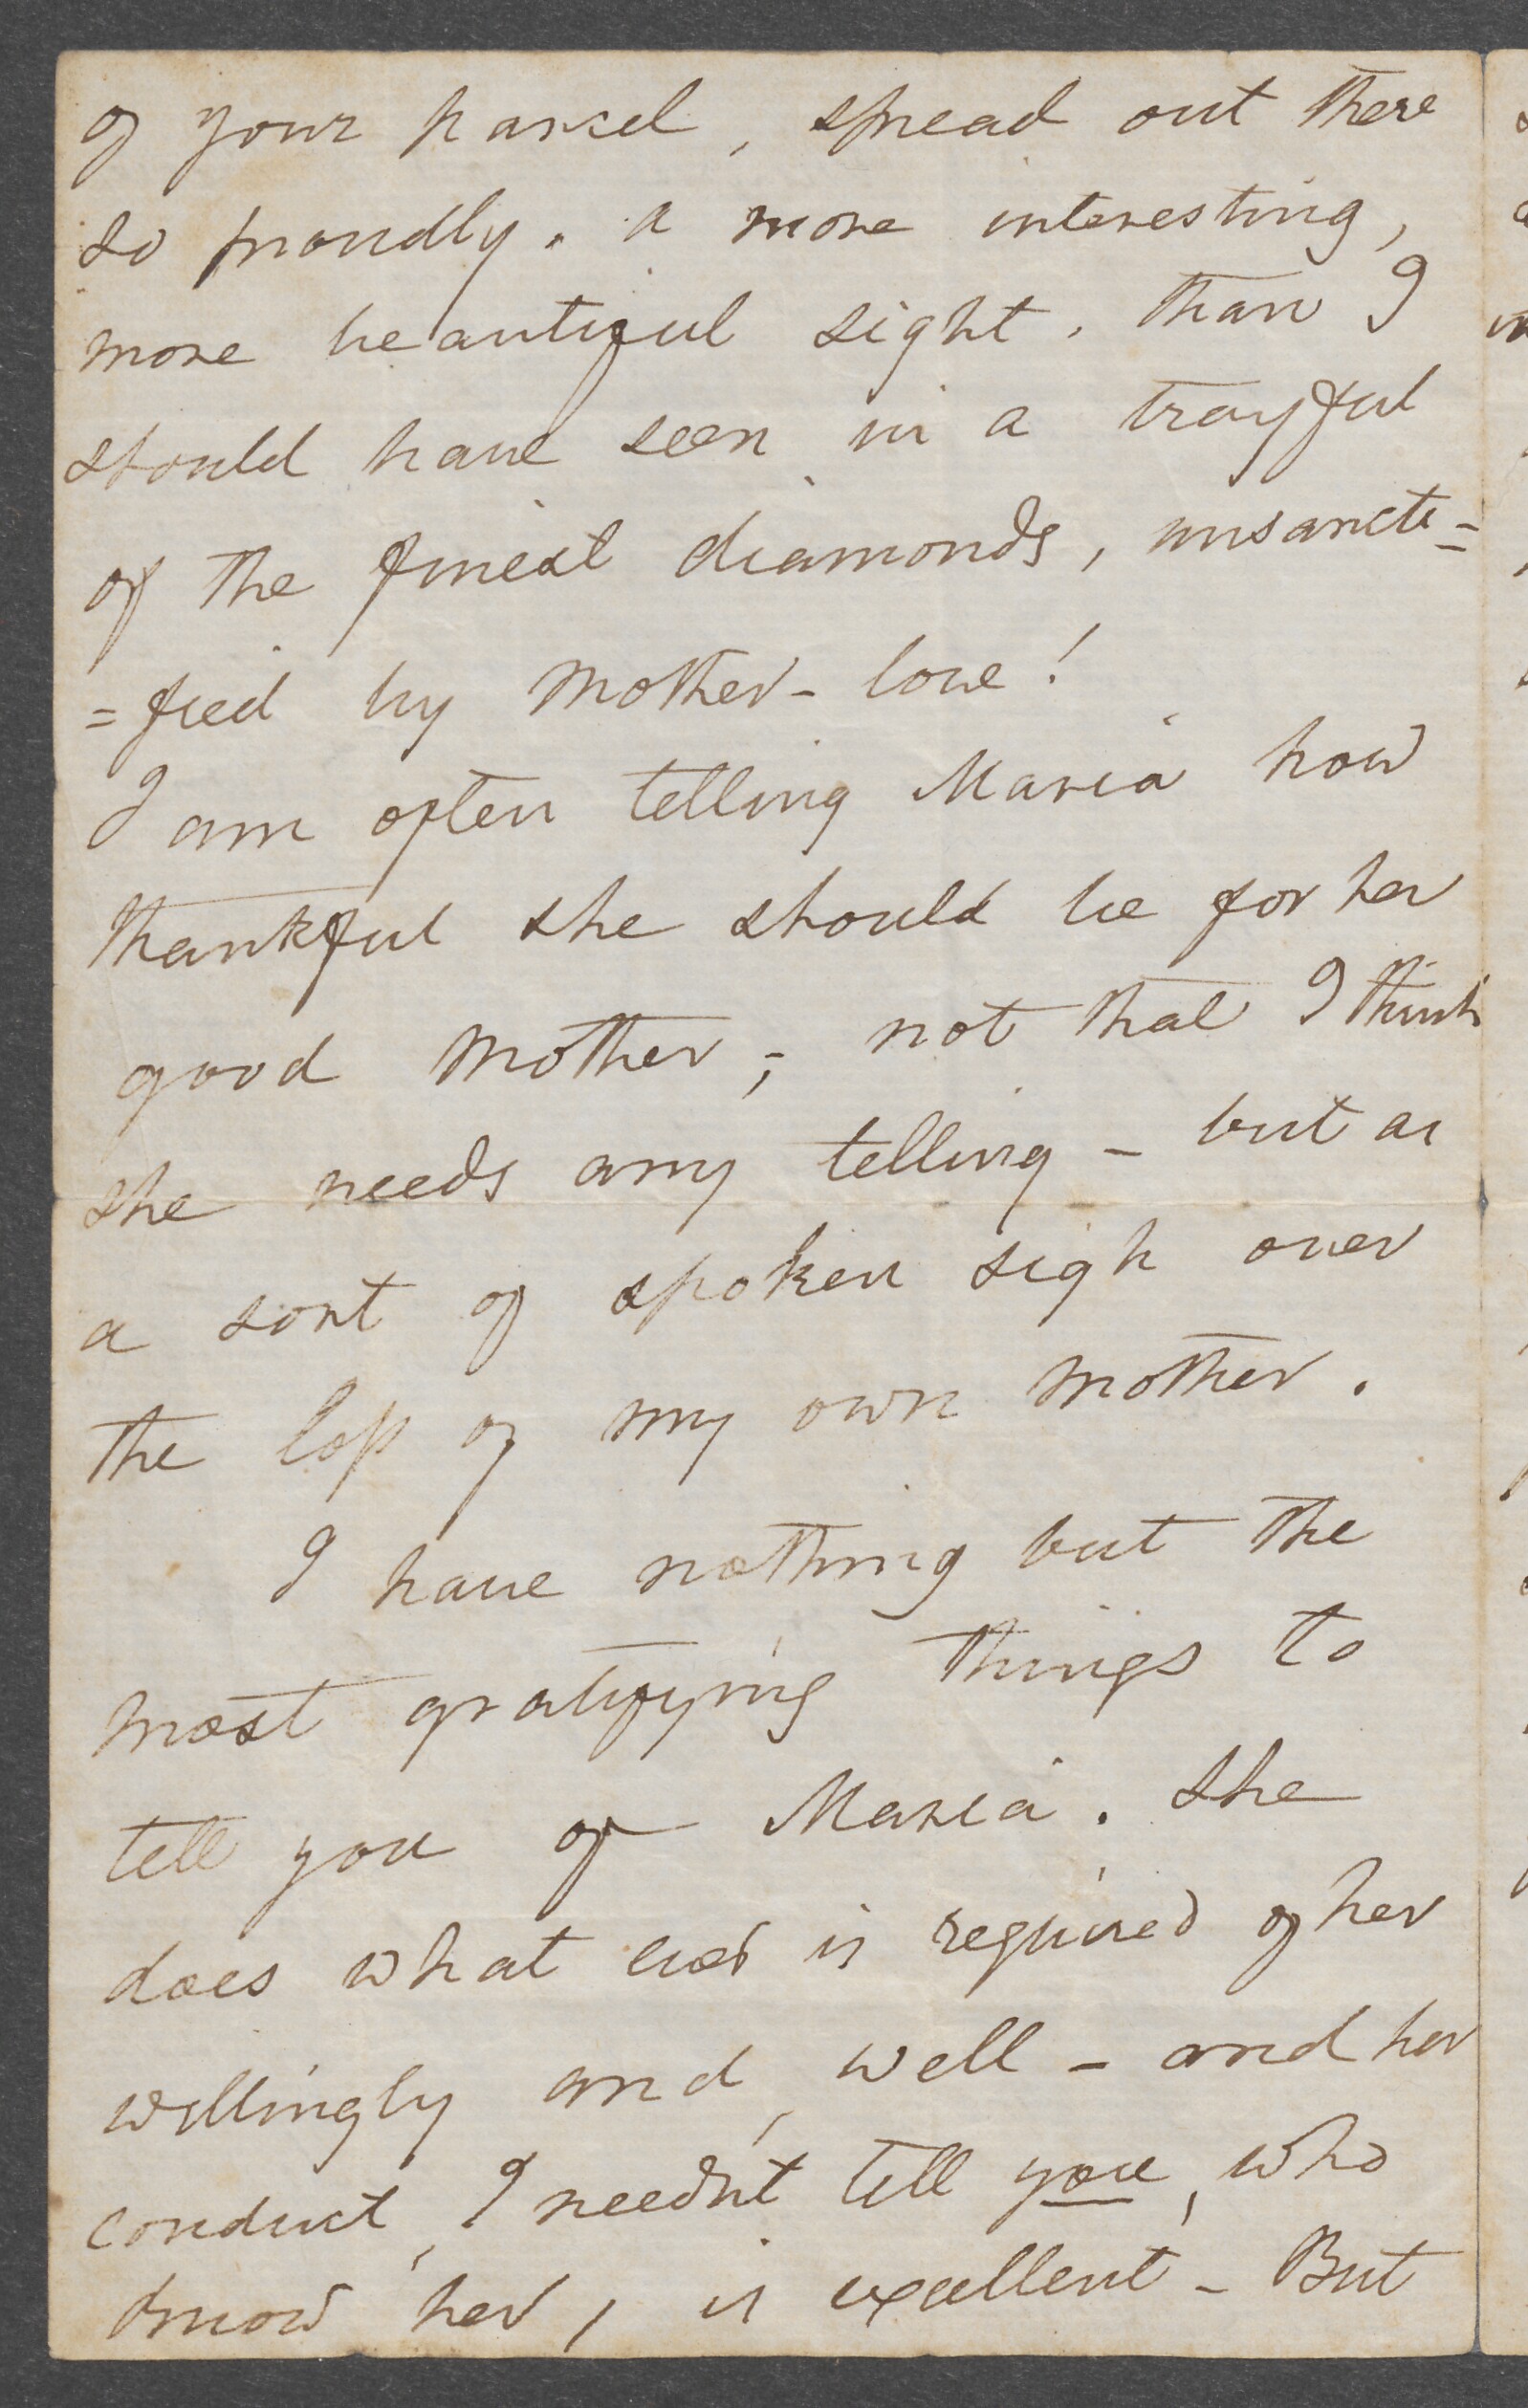 of your parcel, spread out there
so proudly. a more interesting,
more beautiful sight, than I
should have seen in a trayful
of the finest diamonds, unsancti=
=fied by mother-love!
I am often telling Maria how
thankful she should be for her
good mother; not that I think
she needs any telling - but as
a sort of spoken sigh over
the loss of my own mother.
I have nothing but the
most gratifying things to
tell you of Maria. She
does what ever is required of her
willingly and well - and her
conduct, I needn't tell you, who
know her, is excellent - But